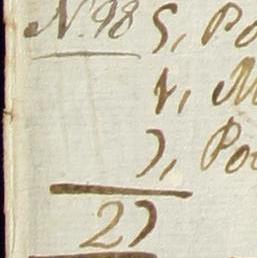 N. 98 5, Po
1, M
7, Po
27